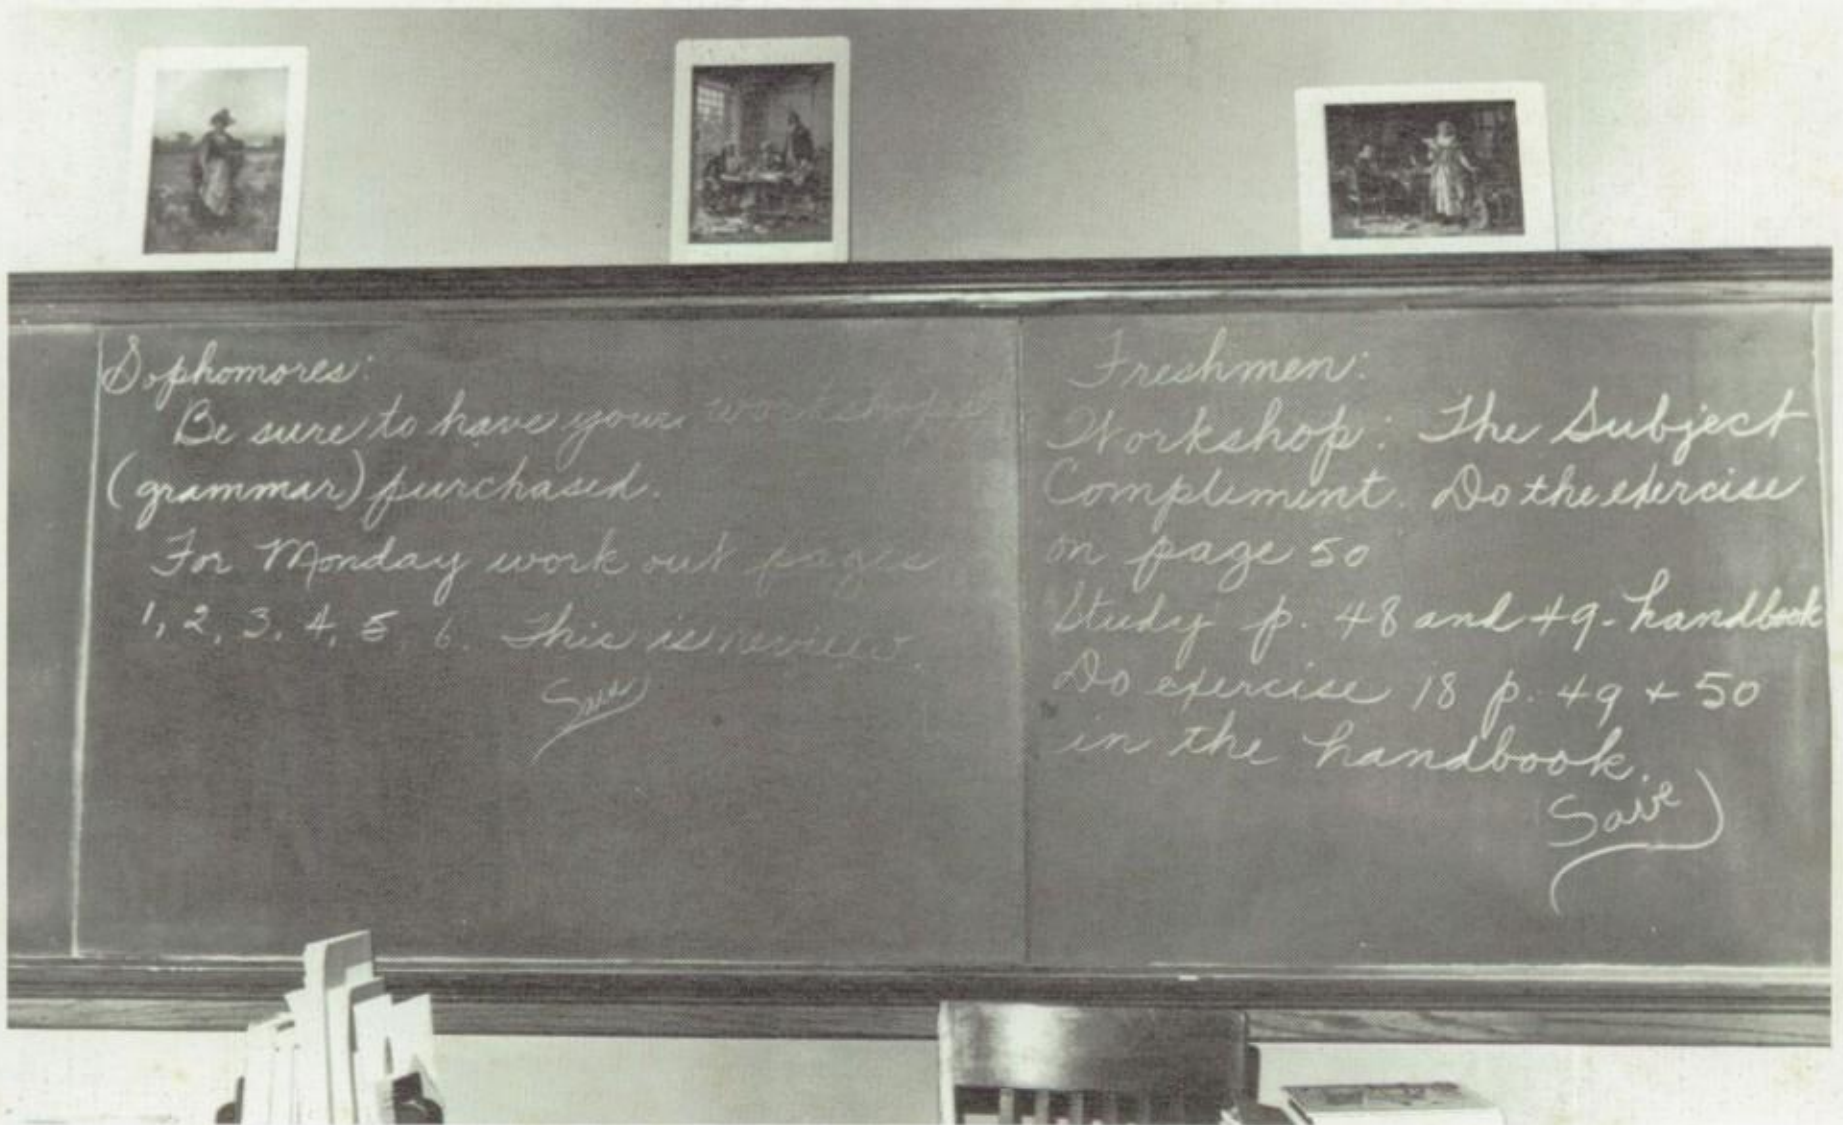 Sophomores:
Be sure to have your workshops
(grammar) purchased.
For Monday work out pages
1, 2, 3, 4, 5, 6. This is review.
Save
Freshmen:
Workshop: The Subject
Compliment. Do the exercise
on page 50
Study p. 48 and 49 - handbook
Do exercise 18 p. 49 + 50
in the handbook.
Save